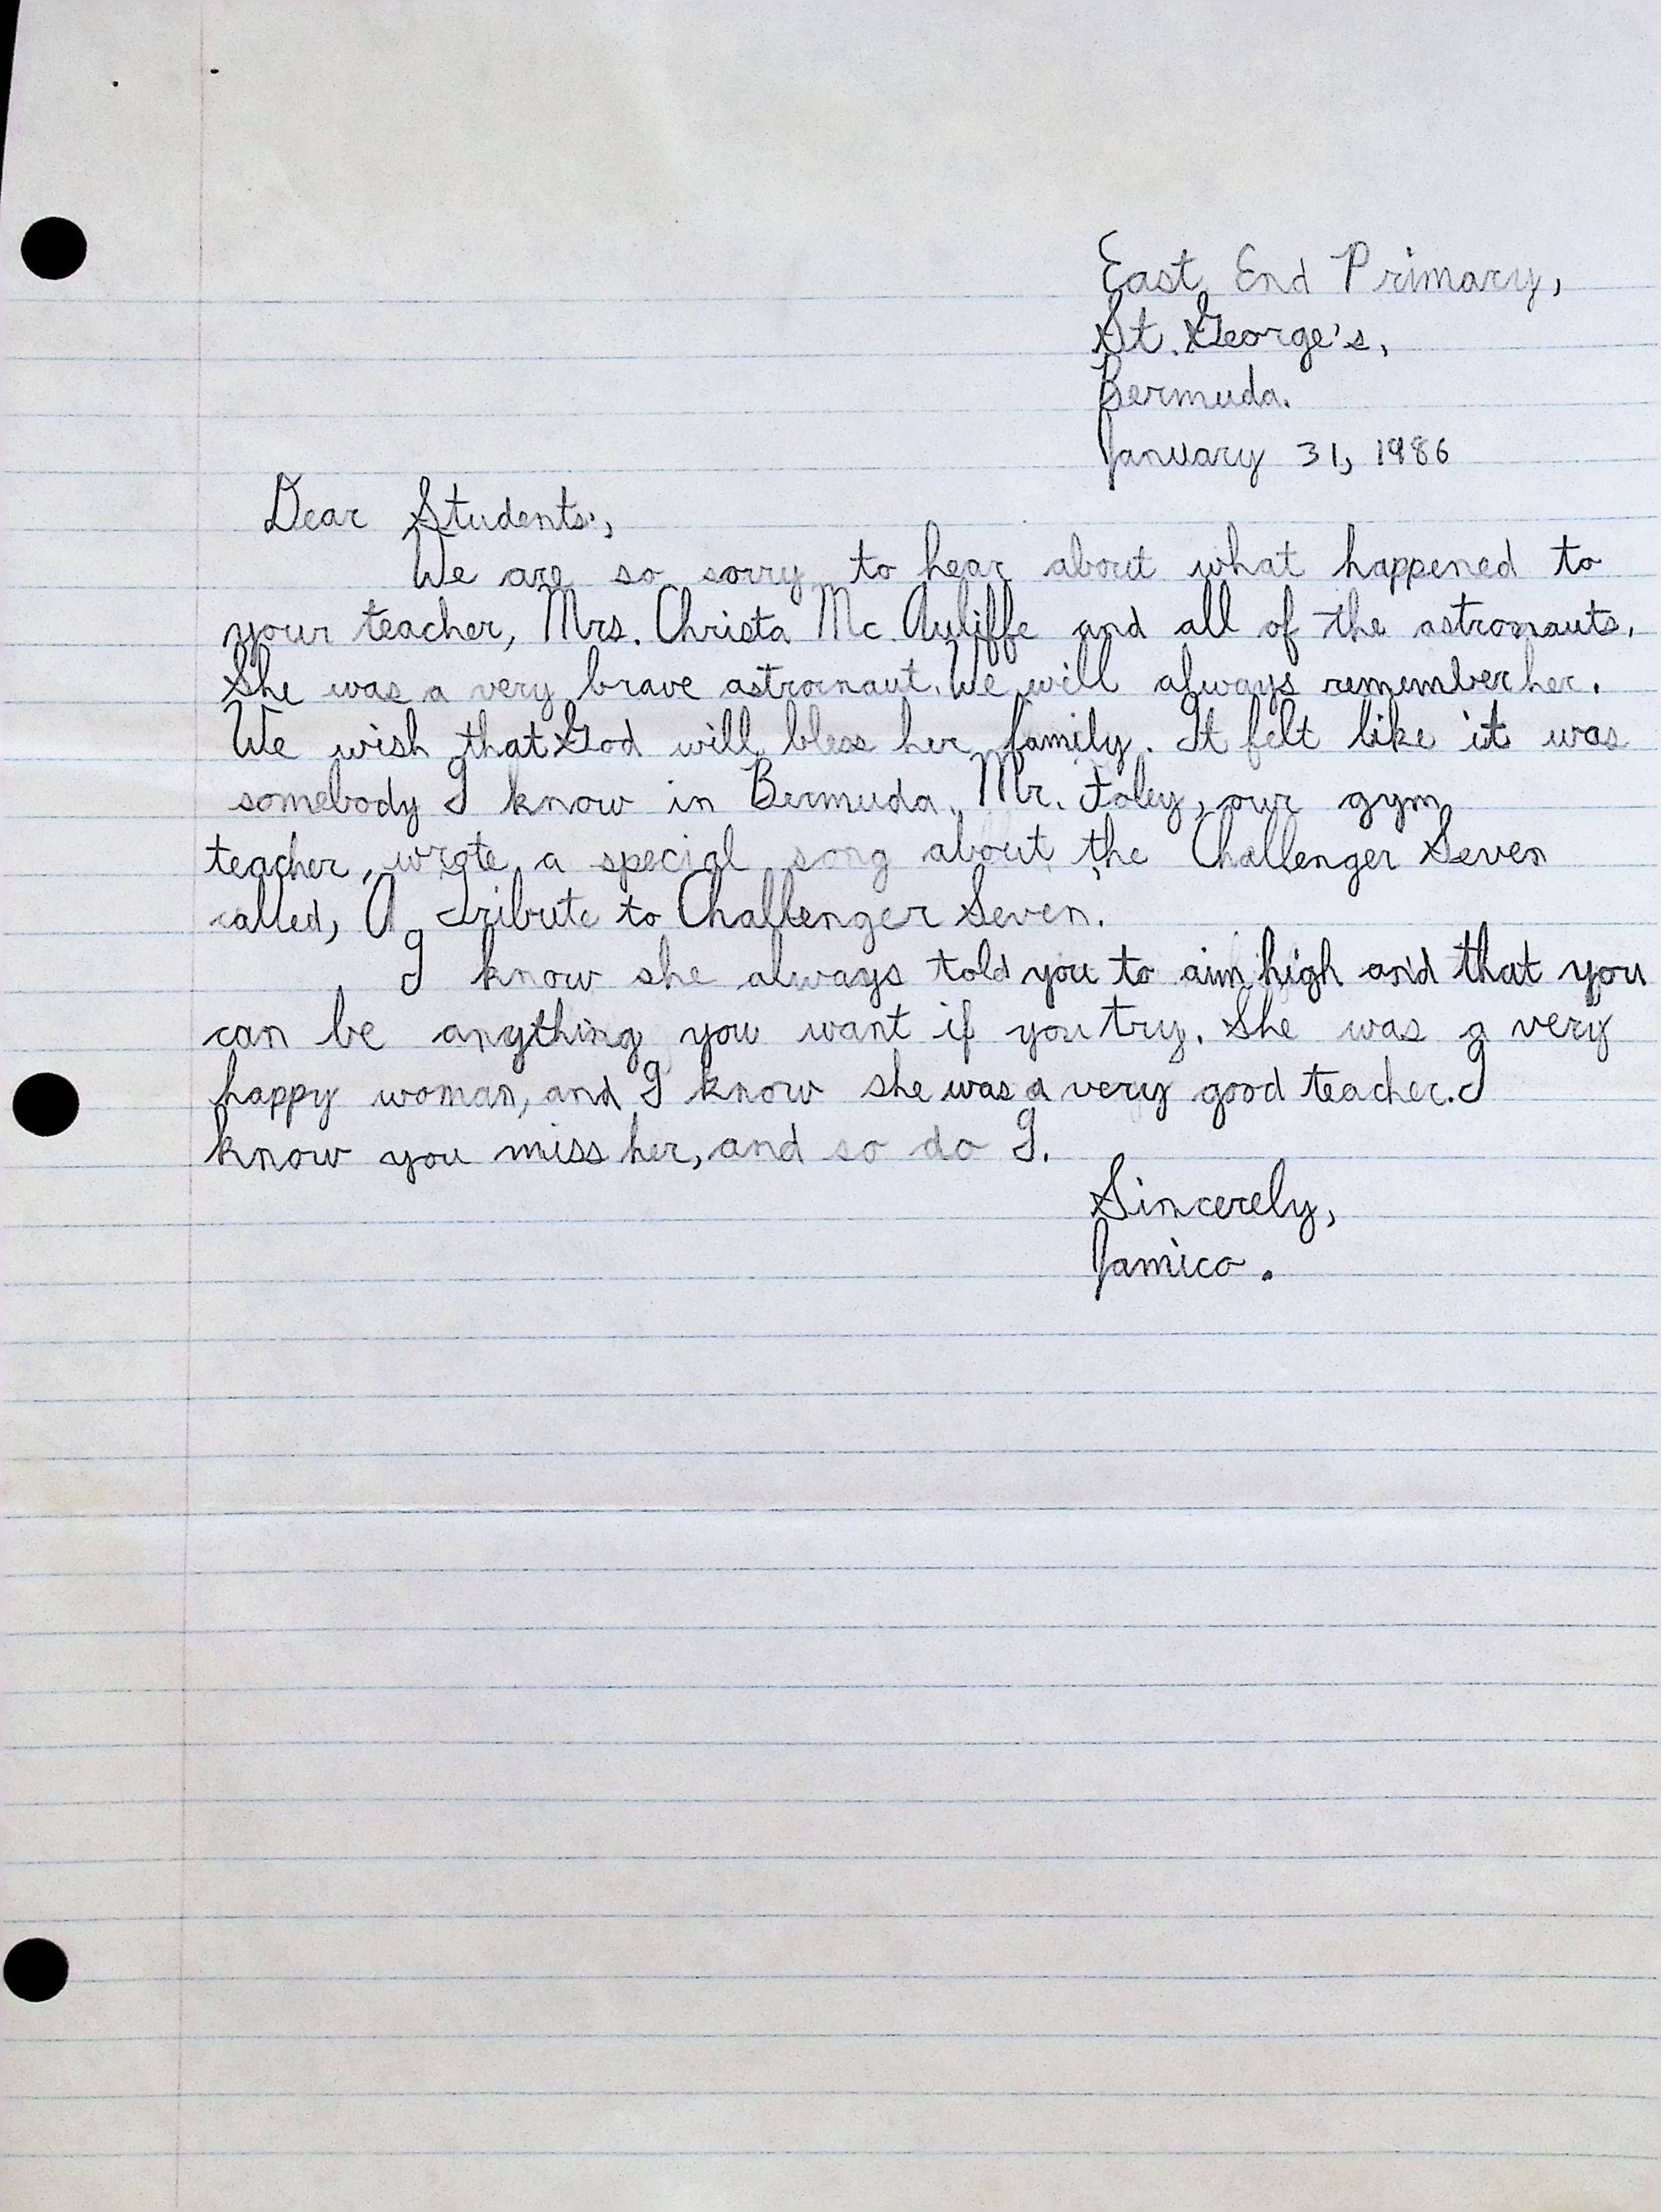 East End Primary,
St. George's,
Bermuda.
January 31, 1986
Dear Students,
We are so sorry to hear about what happened to
your teacher, Mrs. Christa Mc Auliffe and all of the astronauts.
She was a very brave astronaut. We will always remember her.
We wish that God will bless her family. It felt like it was
somebody I know in Bermuda. Mr. Foley, our gym
teacher, wrote a special song about the Challenger Seven
called, A Tribute to Challenger Seven.
I know she always told you to aim high and that you
can be anything you want if you try. She was a very
happy woman, and I know she was a very good teacher. I
know you miss her, and so do I.
Sincerely,
Jamico.